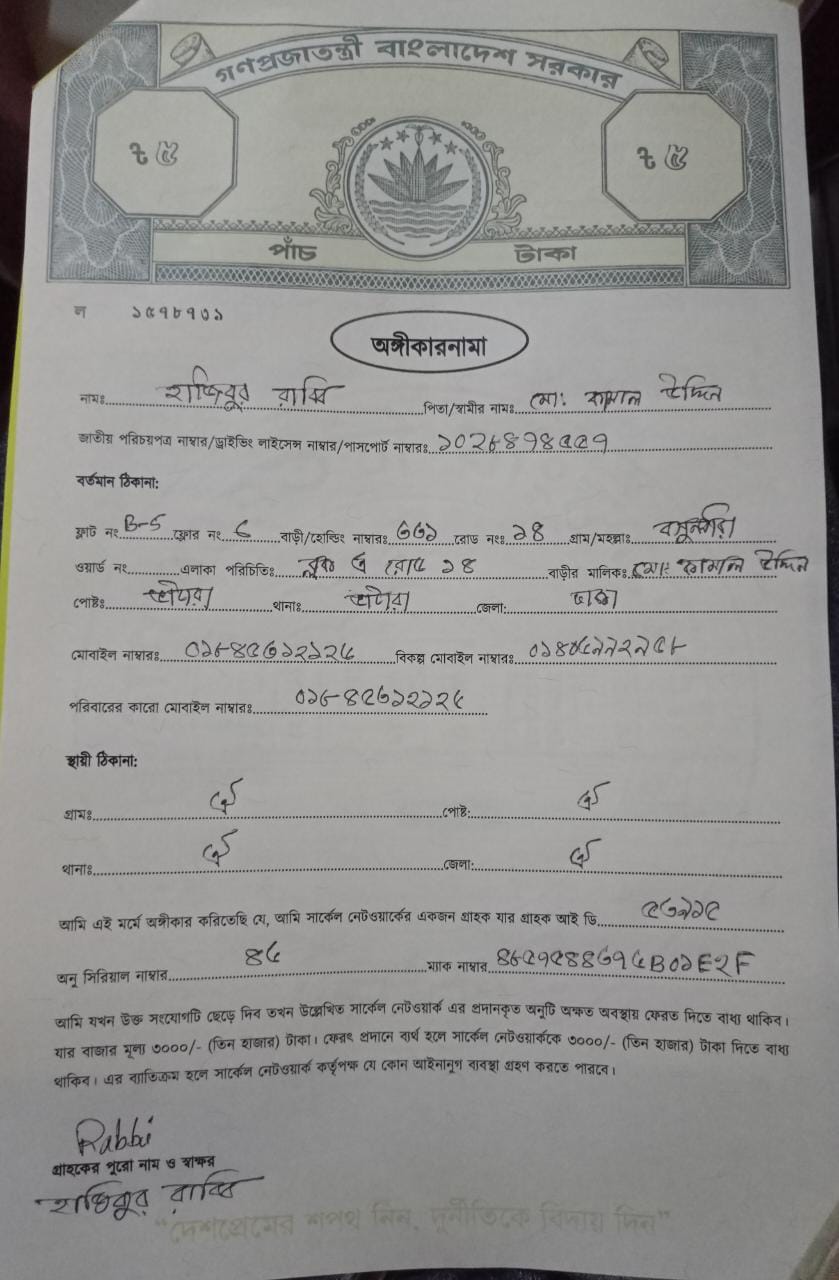 গণপ্রজাতন্ত্রী বাংলাদেশ সরকার
৳ ৫ ৳ ৫
পাঁচ টাকা
ল ১৫৭৮৭৩১
অঙ্গীকারনামা
নামঃ রাব্বি পিতা/স্বামীর নামঃ মো: কামাল উদ্দিন
জাতীয় পরিচয়পত্র নাম্বার/ড্রাইভিং লাইসেন্স নাম্বার/পাসপোর্ট নাম্বারঃ
বর্তমান ঠিকানা:
ফ্লাট নং B-5 ফ্লোর নং ৬ বাড়ী/হোল্ডিং নাম্বারঃ ৬৬১ রোড নংঃ ১৪ গ্রাম/মহল্লাঃ বসুন্ধরা
ওয়ার্ড নং এলাকা পরিচিতিঃ ব্লক রোড ১৪ বাড়ীর মালিকঃ মো: কামাল উদ্দিন
পোষ্টঃ ভাটারা থানাঃ ভাটারা জেলা: ঢাকা
মোবাইল নাম্বারঃ বিকল্প মোবাইল নাম্বারঃ
পরিবারের কারো মোবাইল নাম্বারঃ
স্থায়ী ঠিকানা:
গ্রামঃ ঐ পোষ্ট: ঐ
থানাঃ ঐ জেলা: ঐ
আমি এই মর্মে অঙ্গীকার করিতেছি যে, আমি সার্কেল নেটওয়ার্কের একজন গ্রাহক যার গ্রাহক আই ডি
অনু সিরিয়াল নাম্বার ম্যাক নাম্বার
আমি যখন উক্ত সংযোগটি ছেড়ে দিব তখন উল্লেখিত সার্কেল নেটওয়ার্ক এর প্রদানকৃত অনুটি অক্ষত অবস্থায় ফেরত দিতে বাধ্য থাকিব।
যার বাজার মূল্য ৩০০০/- (তিন হাজার) টাকা। ফেরৎ প্রদানে ব্যর্থ হলে সার্কেল নেটওয়ার্ককে ৩০০০/- (তিন হাজার) টাকা দিতে বাধ্য
থাকিব। এর ব্যতিক্রম হলে সার্কেল নেটওয়ার্ক কর্তৃপক্ষ যে কোন আইনানুগ ব্যবস্থা গ্রহণ করতে পারবে।
Rabbi
গ্রাহকের পুরো নাম ও স্বাক্ষর
রাব্বি
"দেশপ্রেমের শপথ নিন, দুর্নীতিকে বিদায় দিন"